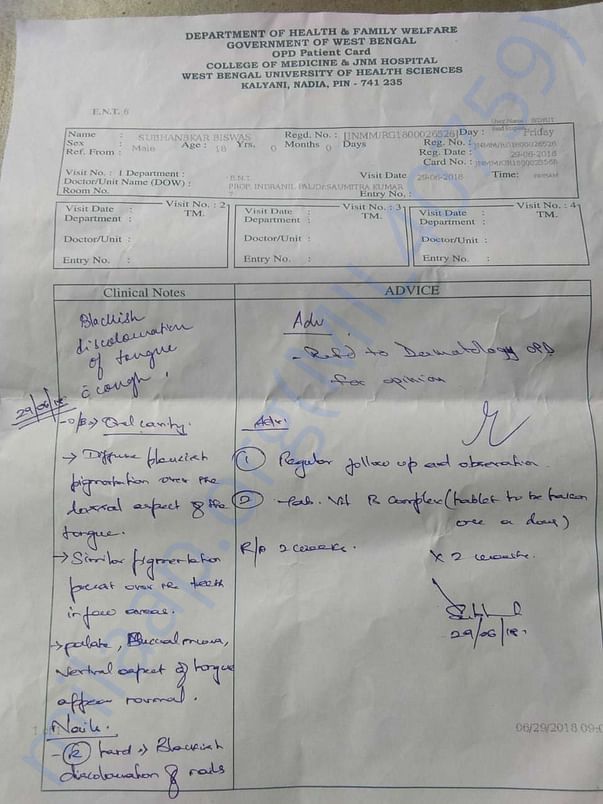 DEPARTMENT OF HEALTH & FAMILY WELFARE
GOVERNMENT OF WEST BENGAL
OPD Patient Card
COLLEGE OF MEDICINE & JNM HOSPITAL
WEST BENGAL UNIVERSITY OF HEALTH SCIENCES
KALYANI, NADIA, PIN - 741 235
E.N.T. 6
Name : SUBHANSKAR BISWAS Regd. No. : [JNMM/RG1800026526] Day : Friday
Sex : Male Age : 18 Yrs. 0 Months 0 Days Reg. No. : JNMM/RG1800026526
Ref. From : Reg. Date : 29-06-2018
Card No. :
Visit No. : 1 Department : E.N.T. Visit Date 29-06-2018 Time:
Doctor/Unit Name (DOW) : PROF. INDRANIL SAUMITRA KUMAR
Room No. 7 Entry No. :
Visit No. : 2 Visit No. : 3 Visit No. : 4
Visit Date : TM. Visit Date : TM. Visit Date : TM.
Department : Department : Department :
Doctor/Unit : Doctor/Unit : Doctor/Unit :
Entry No. : Entry No. : Entry No. :
Clinical Notes ADVICE
Blackish
discolouration
of tongue
c̄ cough.
Adv
- Refd to Dermatology OPD
for opinion
29/06/18
Oral cavity.
→ Diffuse blackish
pigmentation over the
dorsal aspect of the
tongue.
→ Similar pigmentation
present over the teeth
in few areas.
→ palate, Buccal mucosa,
ventral aspect of tongue
appear normal.
Nails.
- (R) hand → Blackish
discolouration of nails
Adv:
① Regular follow up and observation.
② Tab. Vit B Complex (tablet to be taken
once a day)
x 2 weeks.
R/A 2 weeks.
29/06/18.
06/29/2018 09:0
milaap.org